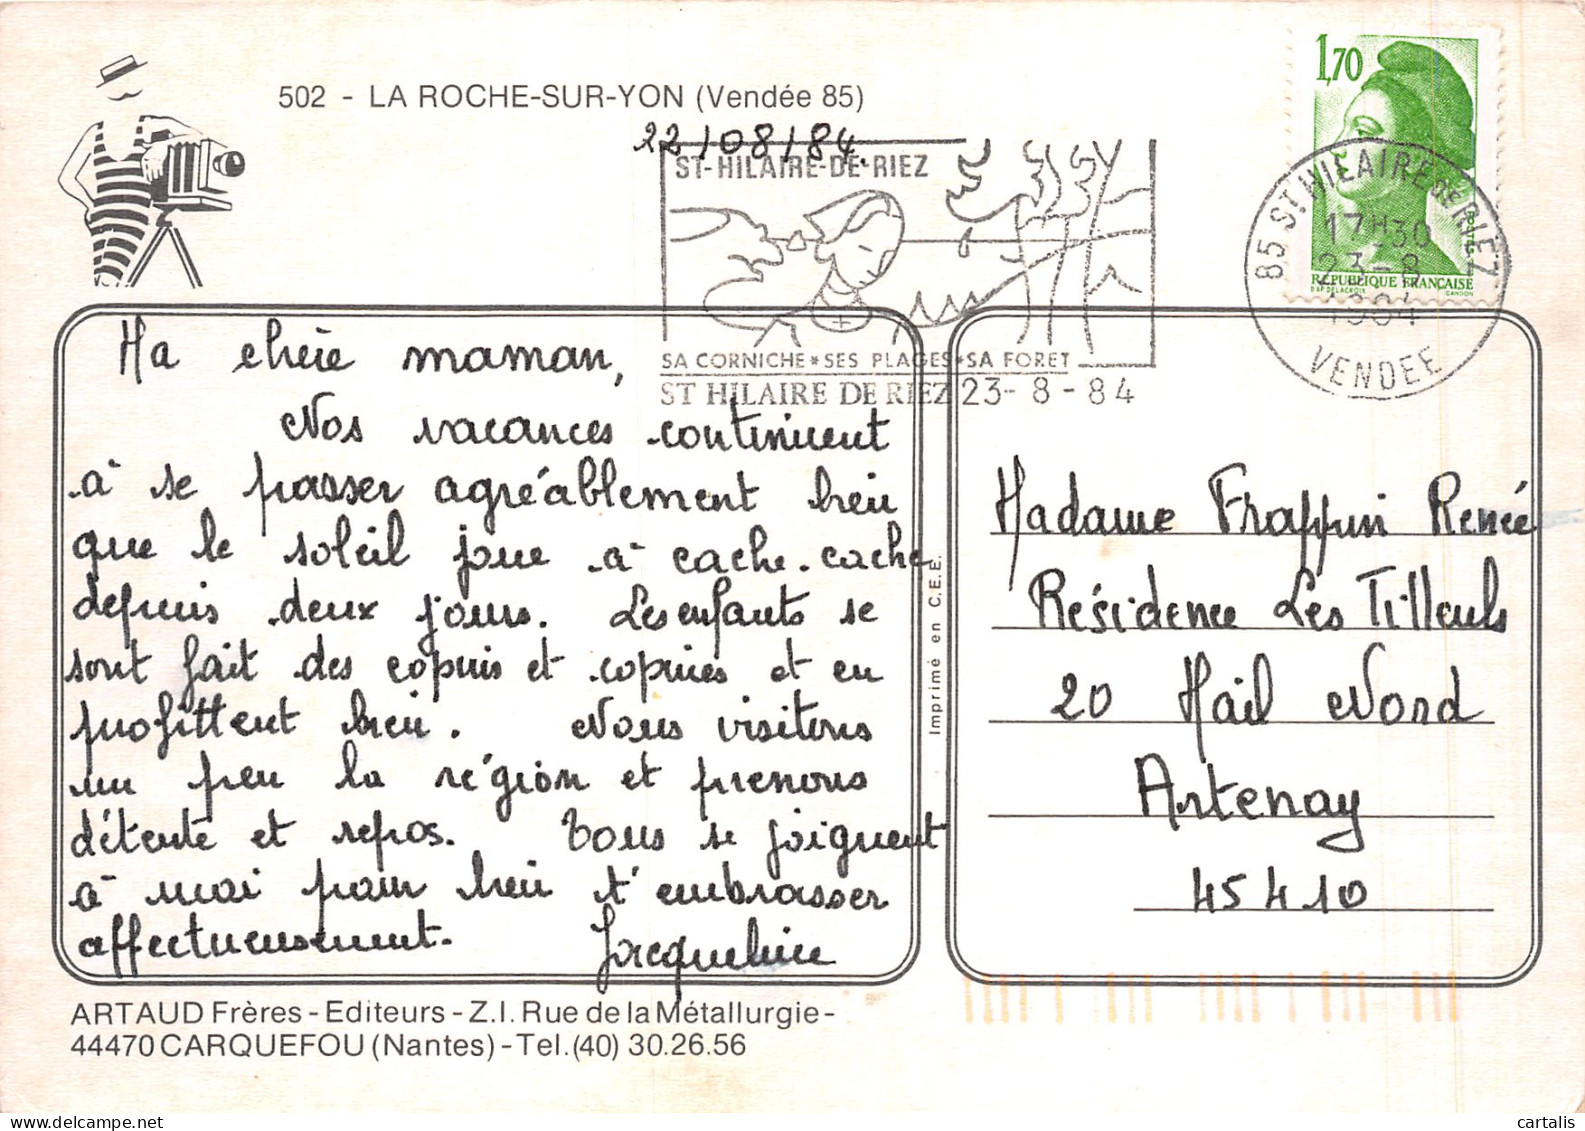 502 - LA ROCHE-SUR-YON (Vendée 85)
22/08/84.
ST-HILAIRE-DE-RIEZ
SA CORNICHE * SES PLAGES * SA FORET
ST HILAIRE DE RIEZ 23-8-84
1,70
RÉPUBLIQUE FRANÇAISE
D'AP. DELACROIX
GANDON
POSTES
85 ST. HILAIRE DE RIEZ
17H30
23-8
1984
VENDEE
Ma chère maman,
Nos vacances continuent
à se passer agréablement bien
que le soleil joue à cache-cache
depuis deux jours. Les enfants se
sont fait des copains et copines et en
profittent bien. Nous visitons
un peu la région et prenons
détente et repos. Tous se joignent
à moi pour bien t'embrasser
affectueusement.
Jacqueline
Imprimé en C.E.E.
Madame Frappin Renée
Résidence Les Tilleuls
20 Mail Nord
Artenay
45410
ARTAUD Frères - Editeurs - Z.I. Rue de la Métallurgie -
44470 CARQUEFOU (Nantes) - Tel. (40) 30.26.56
cartalis